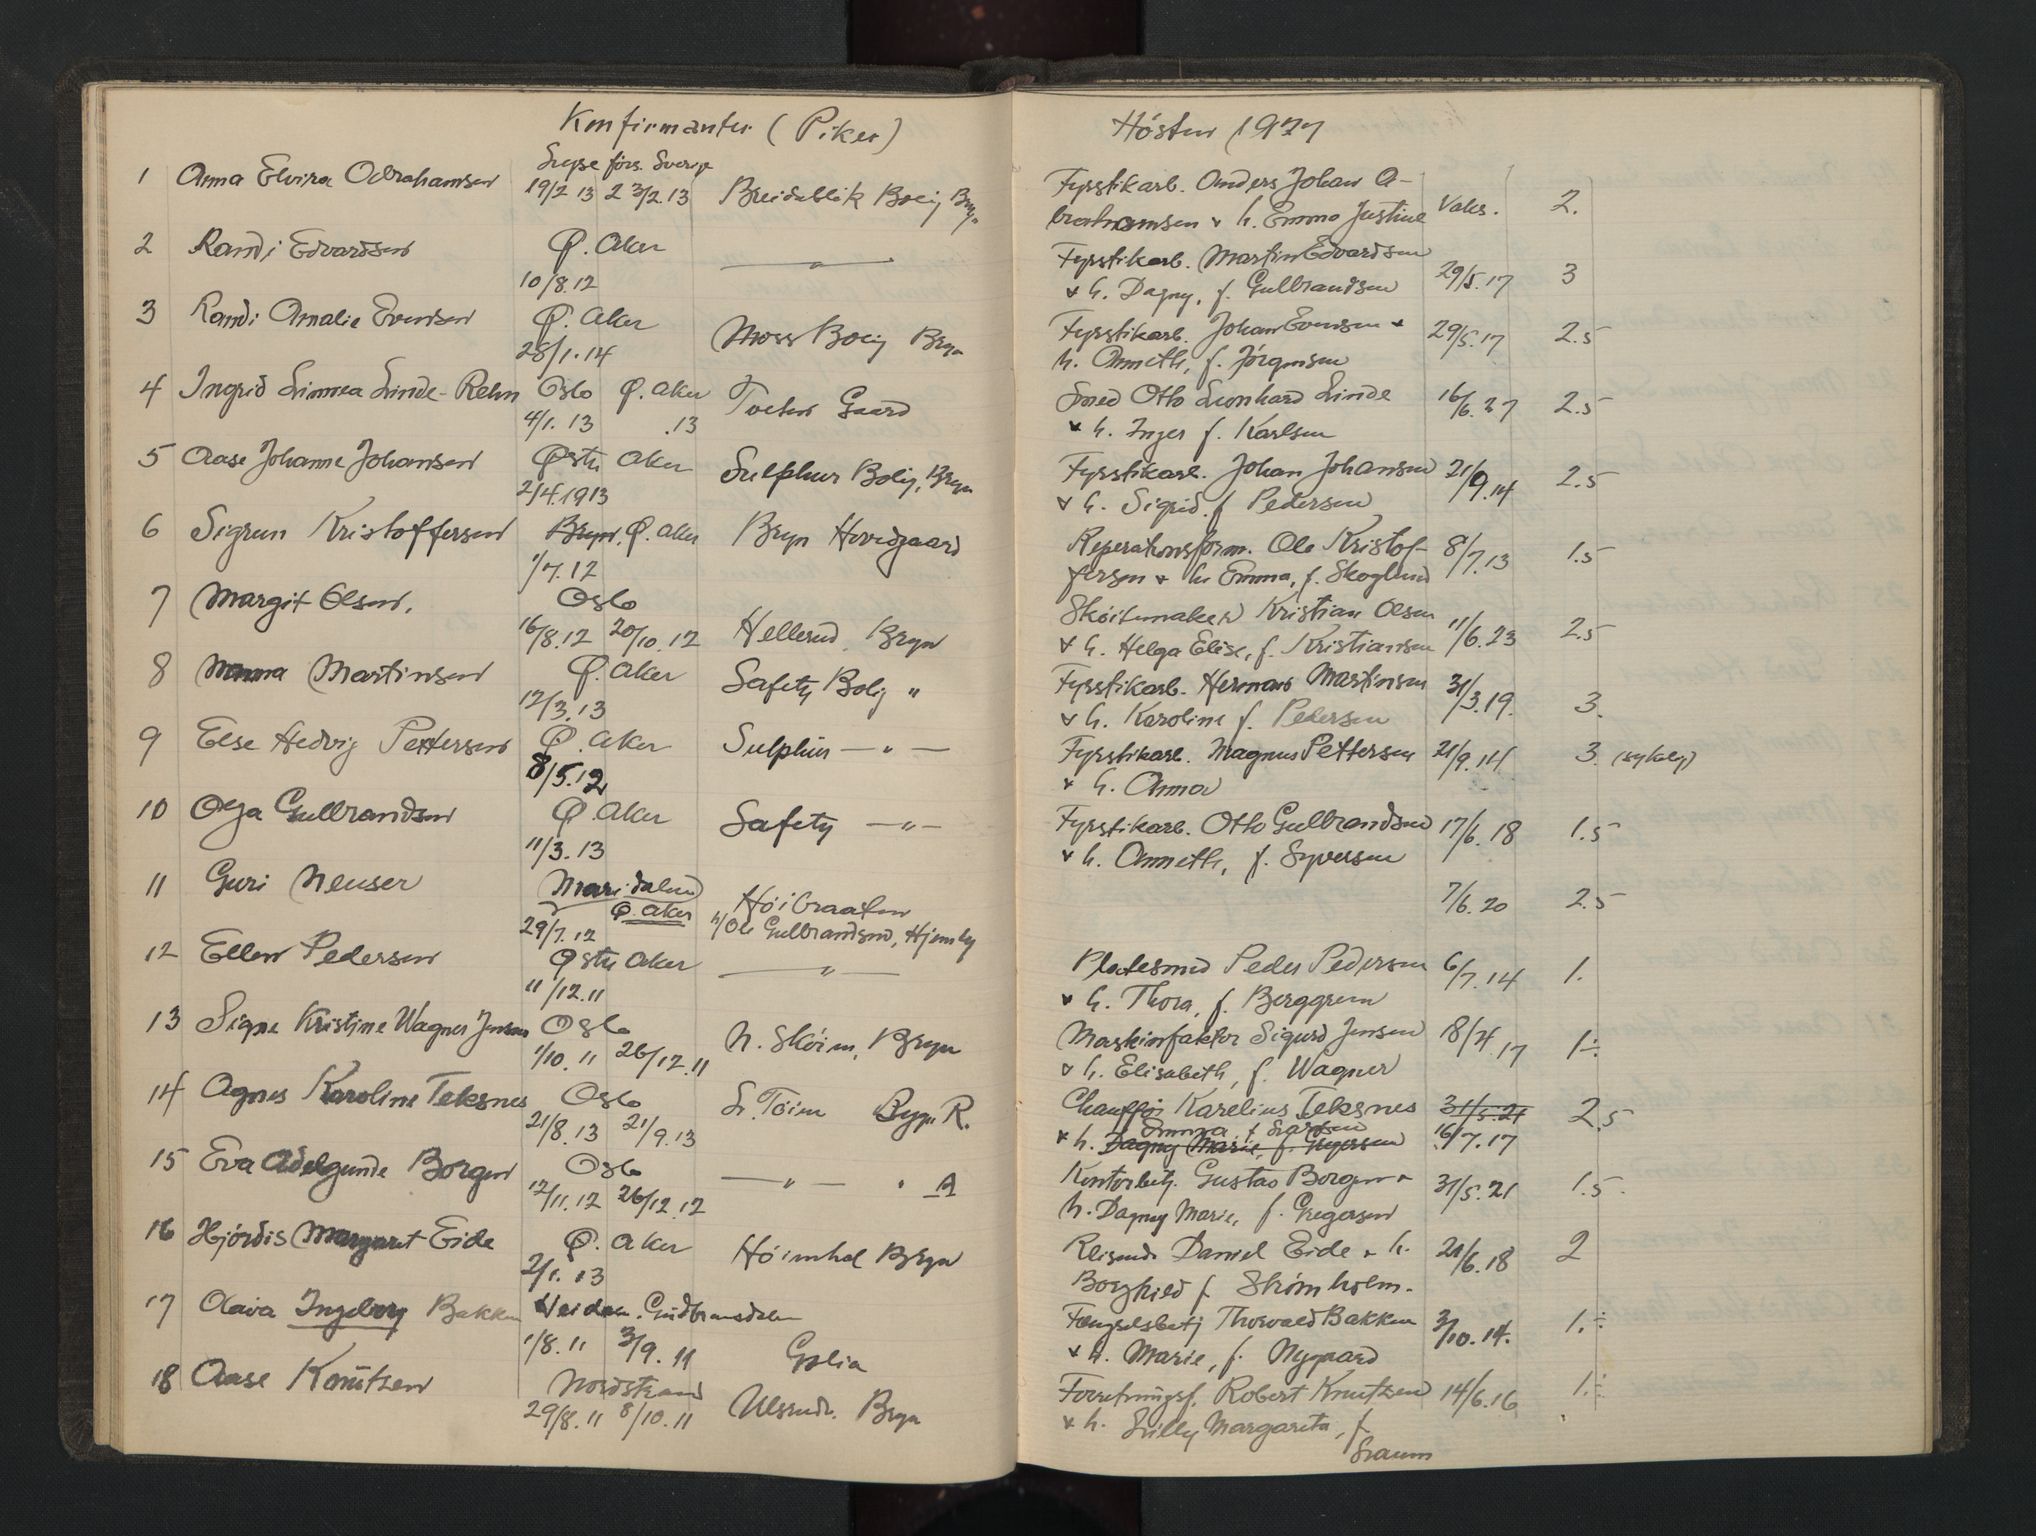 Konfirmanter (Piker)
1 Anna Elvira Abrahamsen förs. Sverige
19/2 13 23/2.13 Breidablik Bolig Bryn
2 Randi Edvardsen Ø. Aker — " —
10/8.12
3 Randi Amalie Evensen Ø. Aker
28/1.14 Moss Bolig Bryn
4 Ingrid Linnea Linde-Rehn Oslo Ø. Aker
4/1.13 .13 Tveten Gaard
5 Aase Johanne Johansen Østre Aker
2/4.1913 Sulphur Bolig, Bryn
6 Sigrun Kristoffersen Bryn, Ø. Aker Bryn Hovedgaard
1/7.12
7 Margit Olsen. Oslo
16/8.12 20/10.12 Hellerud, Bryn
8 Martinsen Ø. Aker Safety Bolig "
12/3.13
9 Else Hedvig Pettersen Ø. Aker Sulphur — " —
8/5.12
10 Olga Gulbrandsen Ø. Aker Safety — " —
11/3.13
11 Guri Neuser Maridalen
Ø. Aker Høibraaten
29/7.12 h/Ole Gulbrandsen, Hjemly
12 Ellen Pedersen Østre Aker — " —
11/12.11
13 Signe Kristine Wagner Jensen Oslo
1/10.11 26/12.11 N. Skøien, Bryn
14 Agnes Karoline Teksnes Oslo
21/8.13 21/9.13 L. Tøien Bryn R.
15 Eva Adelgunde Borgen Oslo
12/11.12 26/12.12 — " — " A
16 Hjørdis Margaret Eide Ø. Aker
2/1.13 Høienhal Bryn
17 Olava Ingeborg Bakken Gudbransdalen
1/8.11 3/9.11
18 Aase Knutzen Nordstrand
29/8.11 8/10.11 Ulsrud. Bryn
Høsten 1927
Fyrstikarb. Anders Johan A-
brahamsen & h. Emma Justine Vaks. 2.
Fyrstikarb. Martin Edvardsen
& h. Dagny, f. Gulbrandsen 29/5.17 3
Fyrstikarb. Johan Evensen & 29/5.17 2.5
h. Anneth, f. Jørgensen
Smed Otto Leonhard Linde 16/6.27 2.5
& h. Inger f. Karlsen
Fyrstikarb. Johan Johansen 21/9.14 2.5
& h. Sigrid f. Pedersen
Reperationsform. Ole Kristof- 8/7.13 1.5
fersen & h. Emma, f. Skoglund
Skøitemaker Kristian Olsen
& h. Helga Elise, f. Kristiansen 11/6.23 2.5
Fyrstikarb. Herman Martinsen 31/3.19. 3.
& h. Karoline f. Pedersen
Fyrstikarb. Magnus Pettersen 21/9.14 3. (sykelig)
& h. Anna
Fyrstikarb. Otto Gulbrandsen 17/6.18 1.5
& h. Anneth, f. Syversen
7/6.20 2.5
Platesmed Peder Pedersen 6/7.14 1.
& h. Thora, f. Berggren
Maskinfaktor Sigurd Jensen 18/4.17 1÷.
& h. Elisabeth, f. Wagner
Chauffør Karelius Teksnes 31/5.21 2.5
Emma f. Larsen
& h. Dagny Marie, f. Gregersen 16/7.17
Kontorbetj. Gustav Borgen & 31/5.21 1.5.
h. Dagny Marie, f. Gregersen
Reisende Daniel Eide & h. 21/6.18 2
Borghild f. Strømholm.
Fengselsbetj Thorvald Bakken 3/10.14. 1.÷
& h. Marie, f. Nygaard
Forretningsf. Robert Knutzen 14/6.16 1.÷
& h. Lilly Margareta, f.